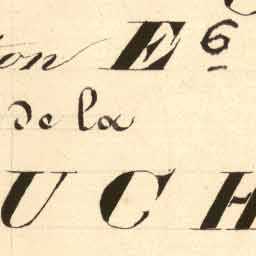 ton E⁶
de la
UCH